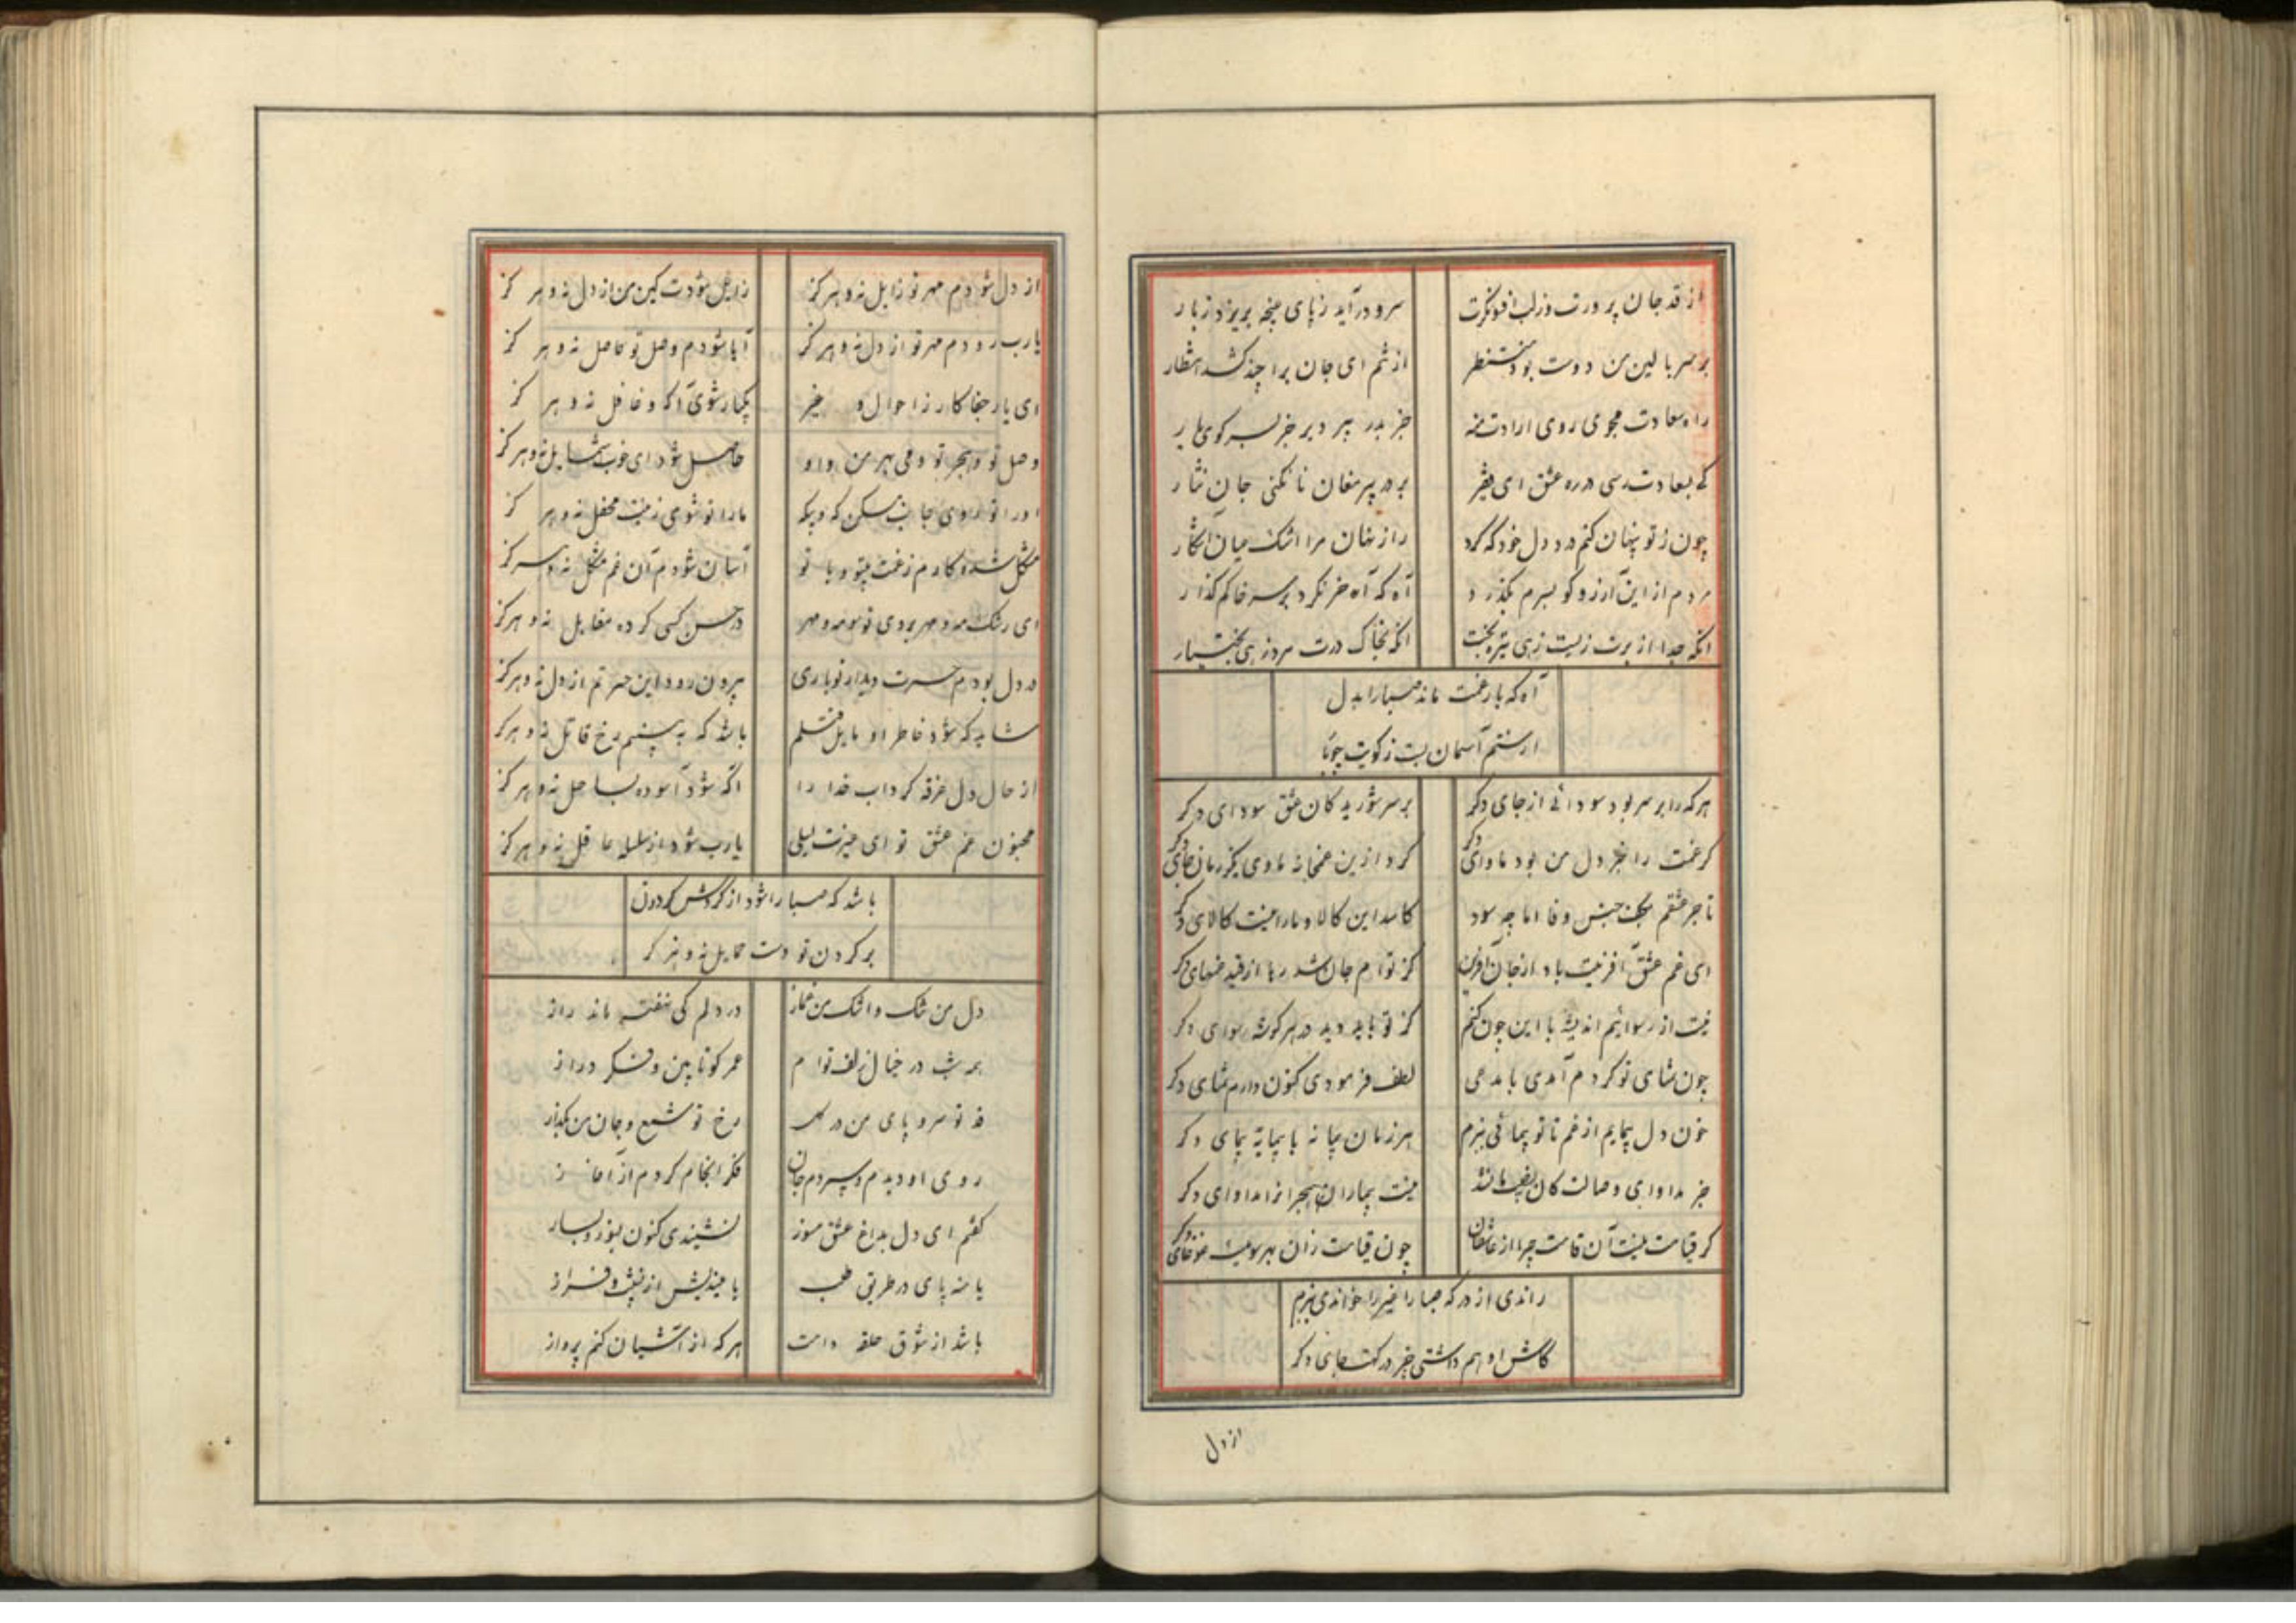 از قد جان پرورت وز لب افسونگرت
سرو درآید ز پای غنچه بریزد ز بار
بر سر بالین من دوست بود منتظر
ای جان برا چند کشد انتظار
راه سعادت مجوی روی ارادت منه
جز بدر پیر دیر جز بسر کوی یار
کی بسعادت رسی در ره عشق ای فقیر
بر در پیر مغان تا نکنی جان نثار
چون ز تو پنهان کنم درد دل خود که کرد
راز نهان مرا اشک میان آشکار
مردم از این آرزو کو بسرم بگذرد
آه که آه خر نکرد بر سر خاکم گذار
آنکه جدا از برت زیست زهی تیره بخت
آنکه بخاک درت مرد زهی بختیار
آه که بار غمت ماند صبا را بدل
از ستم آسمان بست ز کویت چو بار
هر که را بر سر بود سودائی از جای دگر
بر سر شوریدگان عشق سودای دگر
گر غمت را بجز دل من بود ماوای دگر
کرد ازین غمخانه ماوی یکزمان جای دگر
تاجر عشقم بکف جنس وفا اما چه سود
کاسد این کالا و ما را نیست کالای دگر
ای غم عشق آفرینت باد از جان آفرین
کز توام جان شد رها از قید غمهای دگر
نیست از رسوائیم اندیشه با این چون کنم
کز تو باید دید در هر گوشه رسوای دگر
چون تمنای تو کردم آمدی با مدعی
لطف فرمودی کنون دارم تمنای دگر
خون دل پیمایم از غم تا تو پیمائی ببزم
هر زمان پیمانه با پیمانه پیمای دگر
جز مداوای وصالت کان
نیست بیماران هجران را مداوای دگر
گر قیامت نیست آن قامت چرا از عاشقان
چون قیامت زان بهر سویست غوغای دگر
راندی از درگه صبا را غیر را خواندی ببزم
کاش او هم داشتی جز درگهت جای دگر
از دل
از دل شودم مهر تو زایل نه و هرگز
زایل شودت کین من از دل نه و هرگز
یارب رودم مهر تو از دل نه و هرگز
آیا شودم وصل تو حاصل نه و هرگز
ای یار جفاکار ز احوال و غیر
یکبار شوی آگه و غافل نه و هرگز
وصل تو و هجر تو دمی بهر من و او
حاصل شود ای خوب شمایل نه و هرگز
او را تو روی جانب مسکن که و بیگه
ما را تو شوی زینت محفل نه و هرگز
مشکل شده کارم ز غمت بیتو و با تو
آسان شودم آن غم مشکل نه و هرگز
ای رشک مه و مهر بروی تو مه و مهر
در حسن کسی کرده مقابل نه و هرگز
در دل بودم حسرت دیدار تو باری
بیرون رود این حسرتم از دل نه و هرگز
شاید که شود خاطر او مایل قتلم
باشد که به بینم رخ قاتل نه و هرگز
از حال دل غرقه گرداب خدا را
آگه شود آسوده بساحل نه و هرگز
مجنون غم عشق تو ای غیرت لیلی
یارب شود از سلسله عاقل نه و هرگز
باشد که صبا را شود از گردش گردون
بر گردن تو دست حمایل نه و هرگز
دل من تنگ و اشک من غماز
در دلم کی نهفته ماند راز
هر شب در خیال زلف توام
عمر کوتا بین و فکر دراز
قد تو سرو پای من در گل
رخ تو شمع و جان من بگداز
روی او دیدم و سپردم جان
فکر انجام کردم از آغاز
گفتم ای دل بداغ عشق مسوز
نشنیدی کنون بسوز و بساز
یا منه پای در طریق طلب
یا میندیش از نشیب و فراز
باشد از شوق حلقه دامت
هر که از آشیان کنم پرواز